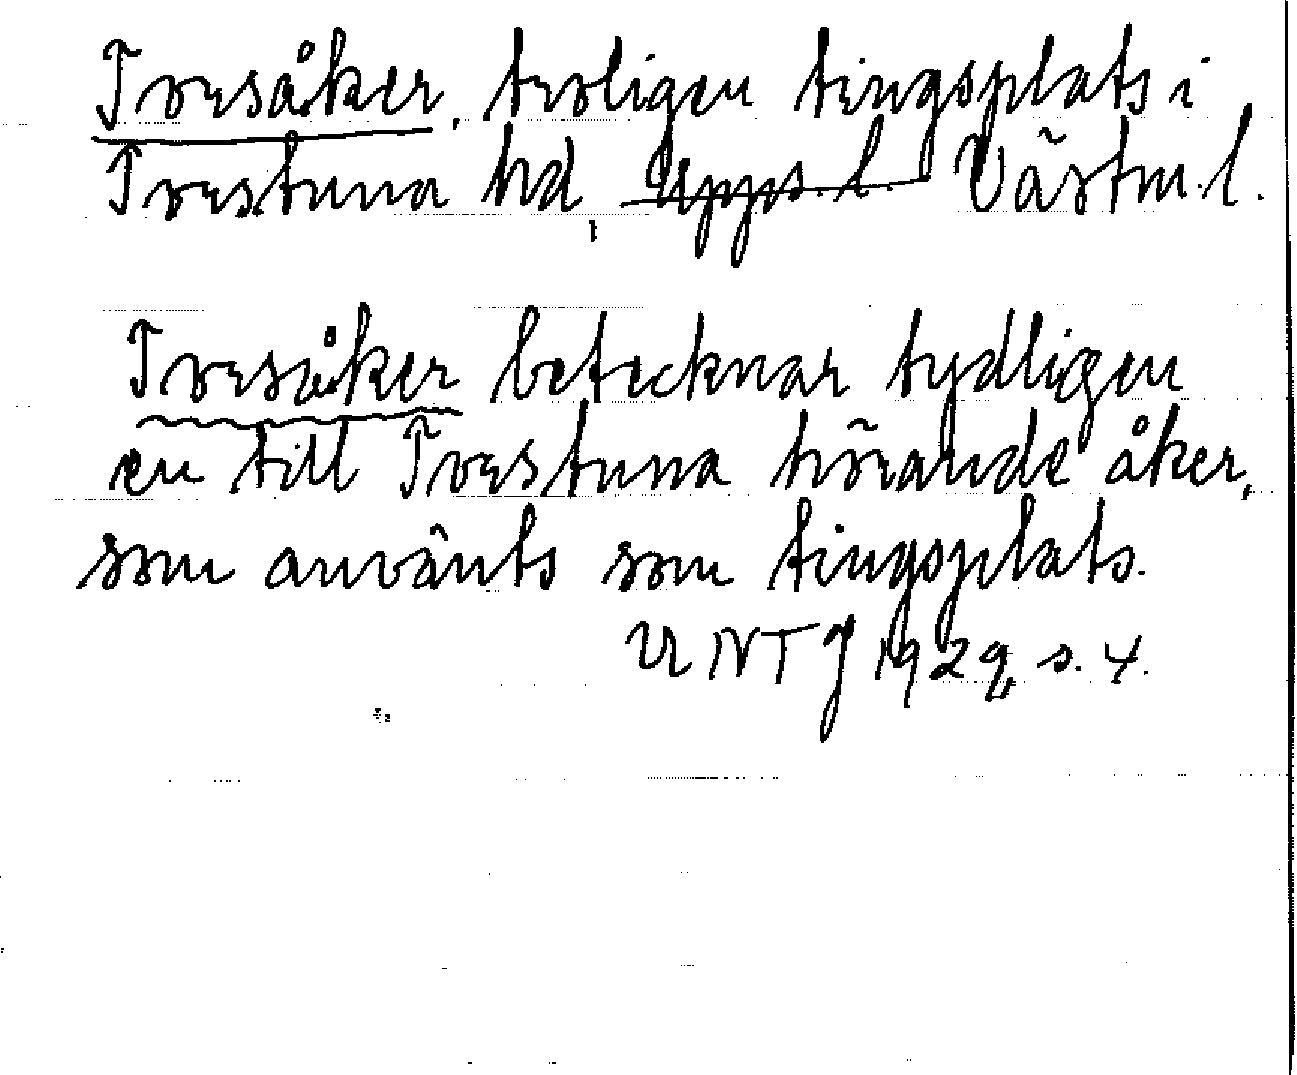 Torsåker, troligen tingsplats i
Torstuna hd, Upps. l. Västm. l.
Torsåker betecknar tydligen
en till Torstuna hörande åker,
som använts som tingsplats.
UNTJ 1929, s. 4.